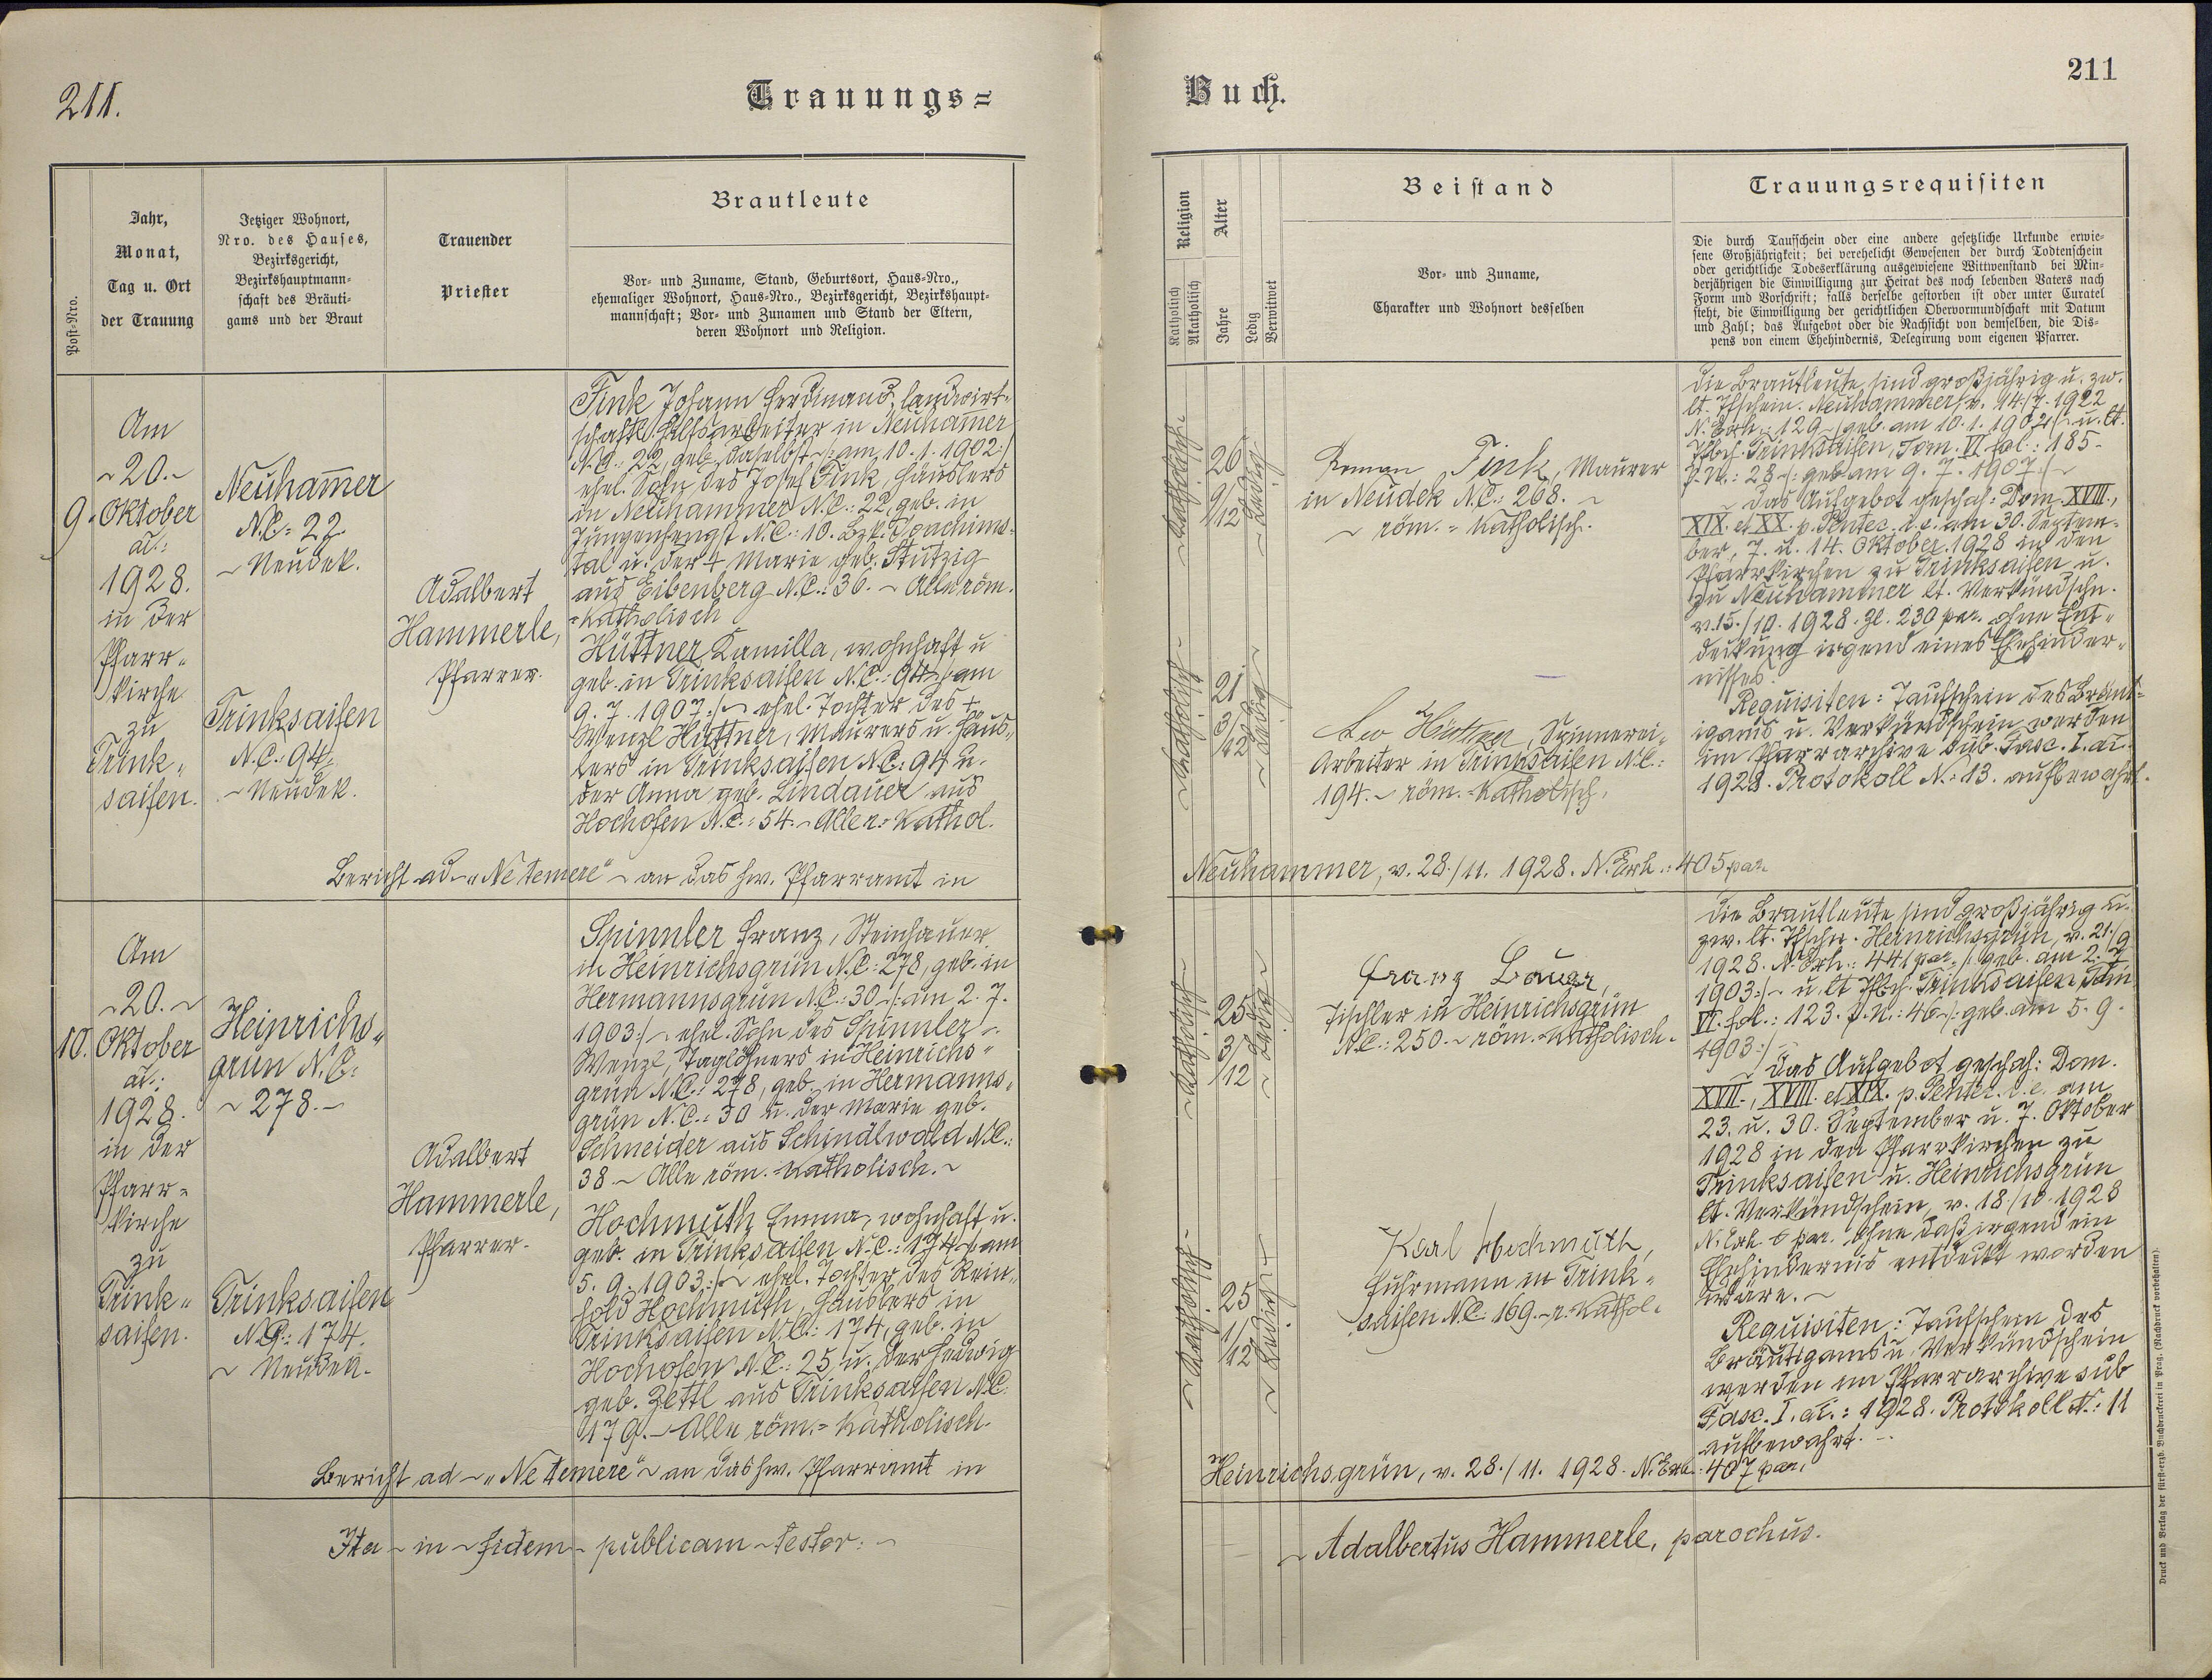 211.
Trauungs=
Post=Nro.
Jahr,
Monat,
Tag u. Ort
der Trauung
Jetziger Wohnort,
Nro. des Hauses,
Bezirksgericht,
Bezirkshauptmann=
schaft des Bräuti=
gams und der Braut
Trauender
Priester
Brautleute
Vor= und Zuname, Stand, Geburtsort, Haus=Nro.,
ehemaliger Wohnort, Haus=Nro., Bezirksgericht, Bezirkshaupt=
mannschaft; Vor= und Zunamen und Stand der Eltern,
deren Wohnort und Religion.
9.
Am
~20.~
Oktober
ai.:
1928.
in der
Pfarr=
kirche
zu
Trink=
saifen.
Neuham̄er
N.C.: 22.
~ Neudek.
Trinksaifen
N.C.: 94.
~ Neudek.
Adalbert
Hammerle,
Pfarrer.
Fink Johann Ferdinand, landwirt=
schaftl. Hilfsarbeiter in Neuham̄er
N.C.: 22, geb. daselbst ~/: am 10.1.1902:/
ehel. Sohn des Josef Fink, Häuslers
in Neuhammer N.C.: 22, geb. in
Jungenhengst N.C.: 10. Bzk. Joachims=
tal u. der + Marie geb. Stutzig
aus Eibenberg N.C.: 36. ~ Alle röm.
=Katholisch
Hüttner Kamilla, wohnhaft u
geb. in Trinksaifen N.C.: 94 ~/: am
9. 7. 1907:/~ ehel. Tochter des +
Wenzl Hüttner, Maurers u. Häus=
lers in Trinksaifen N.C.: 94 u.
der Anna geb. Lindauer aus
Hochofen N.C.: 54. ~ Alle r.= Kathol.
Bericht ad ~ „Ne temere“ ~ an das hw. Pfarramt in
10.
Am
~20.~
Oktober
ai.:
1928.
in der
Pfarr=
kirche
zu
Trink=
saifen.
Heinrichs=
grün N.C.:
~ 278. ~
Trinksaifen
N.C.: 174.
~ Neudek.
Adalbert
Hammerle,
Pfarrer.
Spinnler Franz, Steinhauer
in Heinrichsgrün N.C.: 278, geb. in
Hermannsgrün N.C.: 30 ~/: am 2. 7.
1903:/~ ehel. Sohn des Spinnler ~
Wenzl, Taglöhners in Heinrichs=
grün N.C.: 278, geb. in Hermanns=
grün N.C.: 30 u. der Marie geb.
Schneider aus Schindlwald N.C.:
38 ~ Alle röm.=Katholisch. ~
Hochmuth Emma, wohnhaft u.
geb. in Trinksaifen N.C.: 174 ~/: am
5. 9. 1903:/~ ehel. Tochter des Rein=
hold Hochmuth, Häuslers in
Trinksaifen N.C.: 174, geb. in
Hochofen N.C.: 25 u. der Hedwig
geb. Zettl aus Trinksaifen N.C.
179. ~ Alle röm.= Katholisch.
Bericht ad ~ „Ne temere“ ~ an das hw. Pfarramt in
Ita ~ in ~ fidem ~ publicam ~ testor: ~
Buch.
211
Religion
Katholisch
Akatholisch
Alter
Jahre
Ledig
Verwitwet
Beistand
Vor= und Zuname,
Charakter und Wohnort desselben
Trauungsrequisiten
Die durch Taufschein oder eine andere gesetzliche Urkunde erwie=
sene Großjährigkeit; bei verehelicht Gewesenen der durch Todtenschein
oder gerichtliche Todeserklärung ausgewiesene Wittwenstand bei Min=
derjährigen die Einwilligung zur Heirat des noch lebenden Vaters nach
Form und Vorschrift; falls derselbe gestorben ist oder unter Curatel
steht, die Einwilligung der gerichtlichen Obervormundschaft mit Datum
und Zahl; das Aufgebot oder die Nachsicht von demselben, die Dis=
pens von einem Ehehindernis, Delegirung vom eigenen Pfarrer.
~ Katholisch ~
26
9/12
~ Ledig ~
Roman Fink, Maurer
in Neudek N.C.: 268. ~
~ röm.= Katholisch.
~ Katholisch ~
21
3/12
~ Ledig ~
Leo Hüttner, Spinnerei=
Arbeiter in Trinksaifen N.C.:
194. ~ röm.=Katholisch.
die Brautleute sind großjährig u. zw.
lt. Tfschein. Neuhammer v. 14./7. 1922
N. Exh.: 129 ~/: geb. am 10. 1. 1902:/~ u. lt.
Tfbch. Trinksaifen, Tom. VI. fol.: 185 ~
p.N.: 28 ~/: geb. am 9. 7. 1907:/~
~ Das Aufgebot geschah: Dom. XVIII.,
XIX. et XX. p. Pentec. d.e. am 30. Septem=
ber, 7. u. 14. Oktober 1928 in den
Pfarrkirchen zu Trinksaifen u.
zu Neuhammer lt. Verkündschn.
v. 15./10. 1928. Zl. 230 par. ohne Ent=
deckung irgend eines Ehehinder=
nisses.
Requisiten: Taufschein des Bräut=
igams u. Verkündschein werden
im Pfarrarchive sub. Fasc. I. ai.
1928. Protokoll N.: 13. aufbewahrt.
Neuhammer, v. 28./11. 1928. N. Exh.: 405 par.
~ Katholisch ~
25
3/12
~ Ledig ~
Franz Bauer,
Tischler in Heinrichsgrün
N.C.: 250. ~ röm.=Katholisch.
~ Katholisch ~
25
1/12
~ Ledig ~
Karl Hochmuth,
Fuhrmann in Trink=
saifen N.C.: 169. ~ r. Kathol.
die Brautleute sind großjährig u.
zw. lt. Tfschn. Heinrichsgrün, v. 21./9
1928. N. Exh.: 441 par. /: geb. am 2. 7.
1903:/~ u. lt Tfbch. Trinksaifen Tom
VI. fol.: 123. p.N.: 46 ~/: geb. am 5. 9.
1903:/~
~ Das Aufgebot geschah: Dom.
XVII., XVIII. et XIX. p. Pentec. d.e. am
23. u. 30. September u. 7. Oktober
1928 in den Pfarrkirchen zu
Trinksaifen u. Heinrichsgrün
lt. Verkündschein, v. 18./10. 1928
N. Exh. par. ohne daß irgend ein
Ehehindernis entdeckt worden
wäre. ~
Requisiten: Taufschein des
Bräutigams u. Verkündschein
werden im Pfarrarchive sub
Fasc. I. ai.: 1928. Protokoll N.: 11
aufbewahrt. ~
Heinrichsgrün, v. 28./11. 1928. N. Exh.: 407 par.
~ Adalbertus Hammerle, parochus.
Druck und Verlag der fürst=erzb. Buchdruckerei in Prag. (Nachdruck vorbehalten).